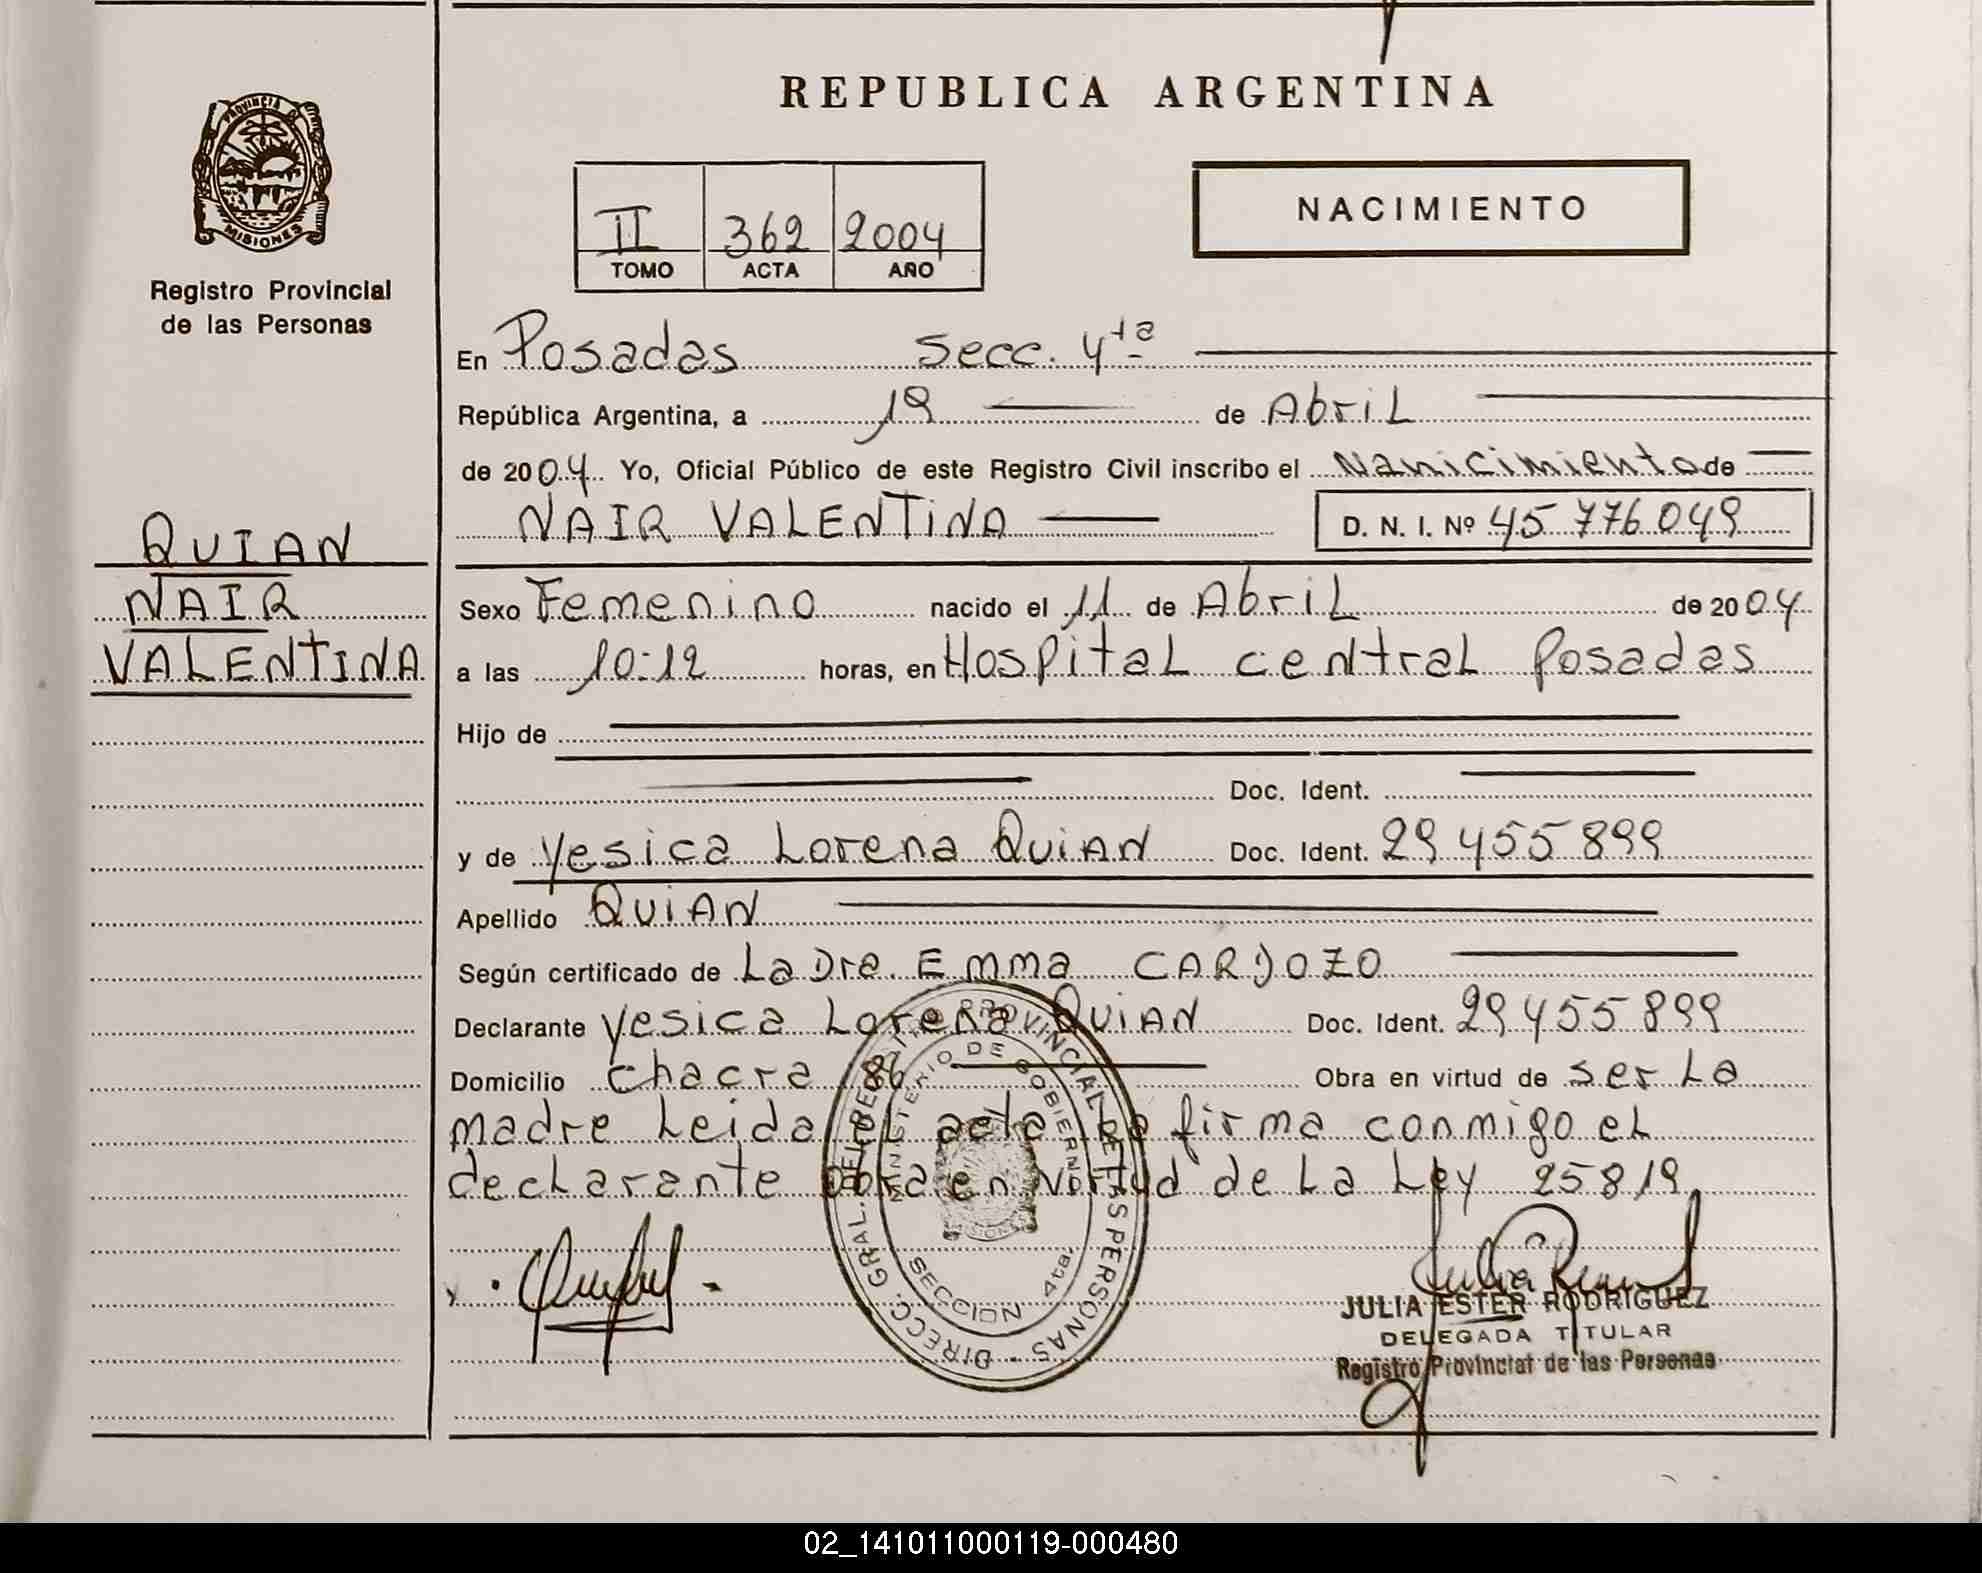 REPUBLICA ARGENTINA
PROVINCIA
MISIONES
Registro Provincial
de las Personas
NACIMIENTO
II 362 2004
TOMO ACTA AÑO
En Posadas secc. 4ta
República Argentina, a 19 de Abril
de 2004 Yo, Oficial Público de este Registro Civil inscribo el Nanicimiento de
NAIR VALENTINA D. N. I. Nº 45 776 049
QUIAN
NAIR
VALENTINA
Sexo Femenino nacido el 11 de Abril de 2004
a las 10:12 horas, en Hospital central Posadas
Hijo de
Doc. Ident.
y de Yesica Lorena Quian Doc. Ident. 29 455 899
Apellido Quian
Según certificado de La Dra. Emma CARDOZO
Declarante Yesica Lorena Quian Doc. Ident. 29 455 899
Domicilio chacra 86 Obra en virtud de ser La
madre Leida el acta La firma conmigo el
declarante obra en virtud de La Ley 25819
DIRECC. GRAL. DEL REGISTRO PROVINCIAL DE LAS PERSONAS
MINISTERIO DE GOBIERNO
SECCION 4ta.
JULIA ESTER RODRIGUEZ
DELEGADA TITULAR
Registro Provincial de las Personas
02_141011000119-000480